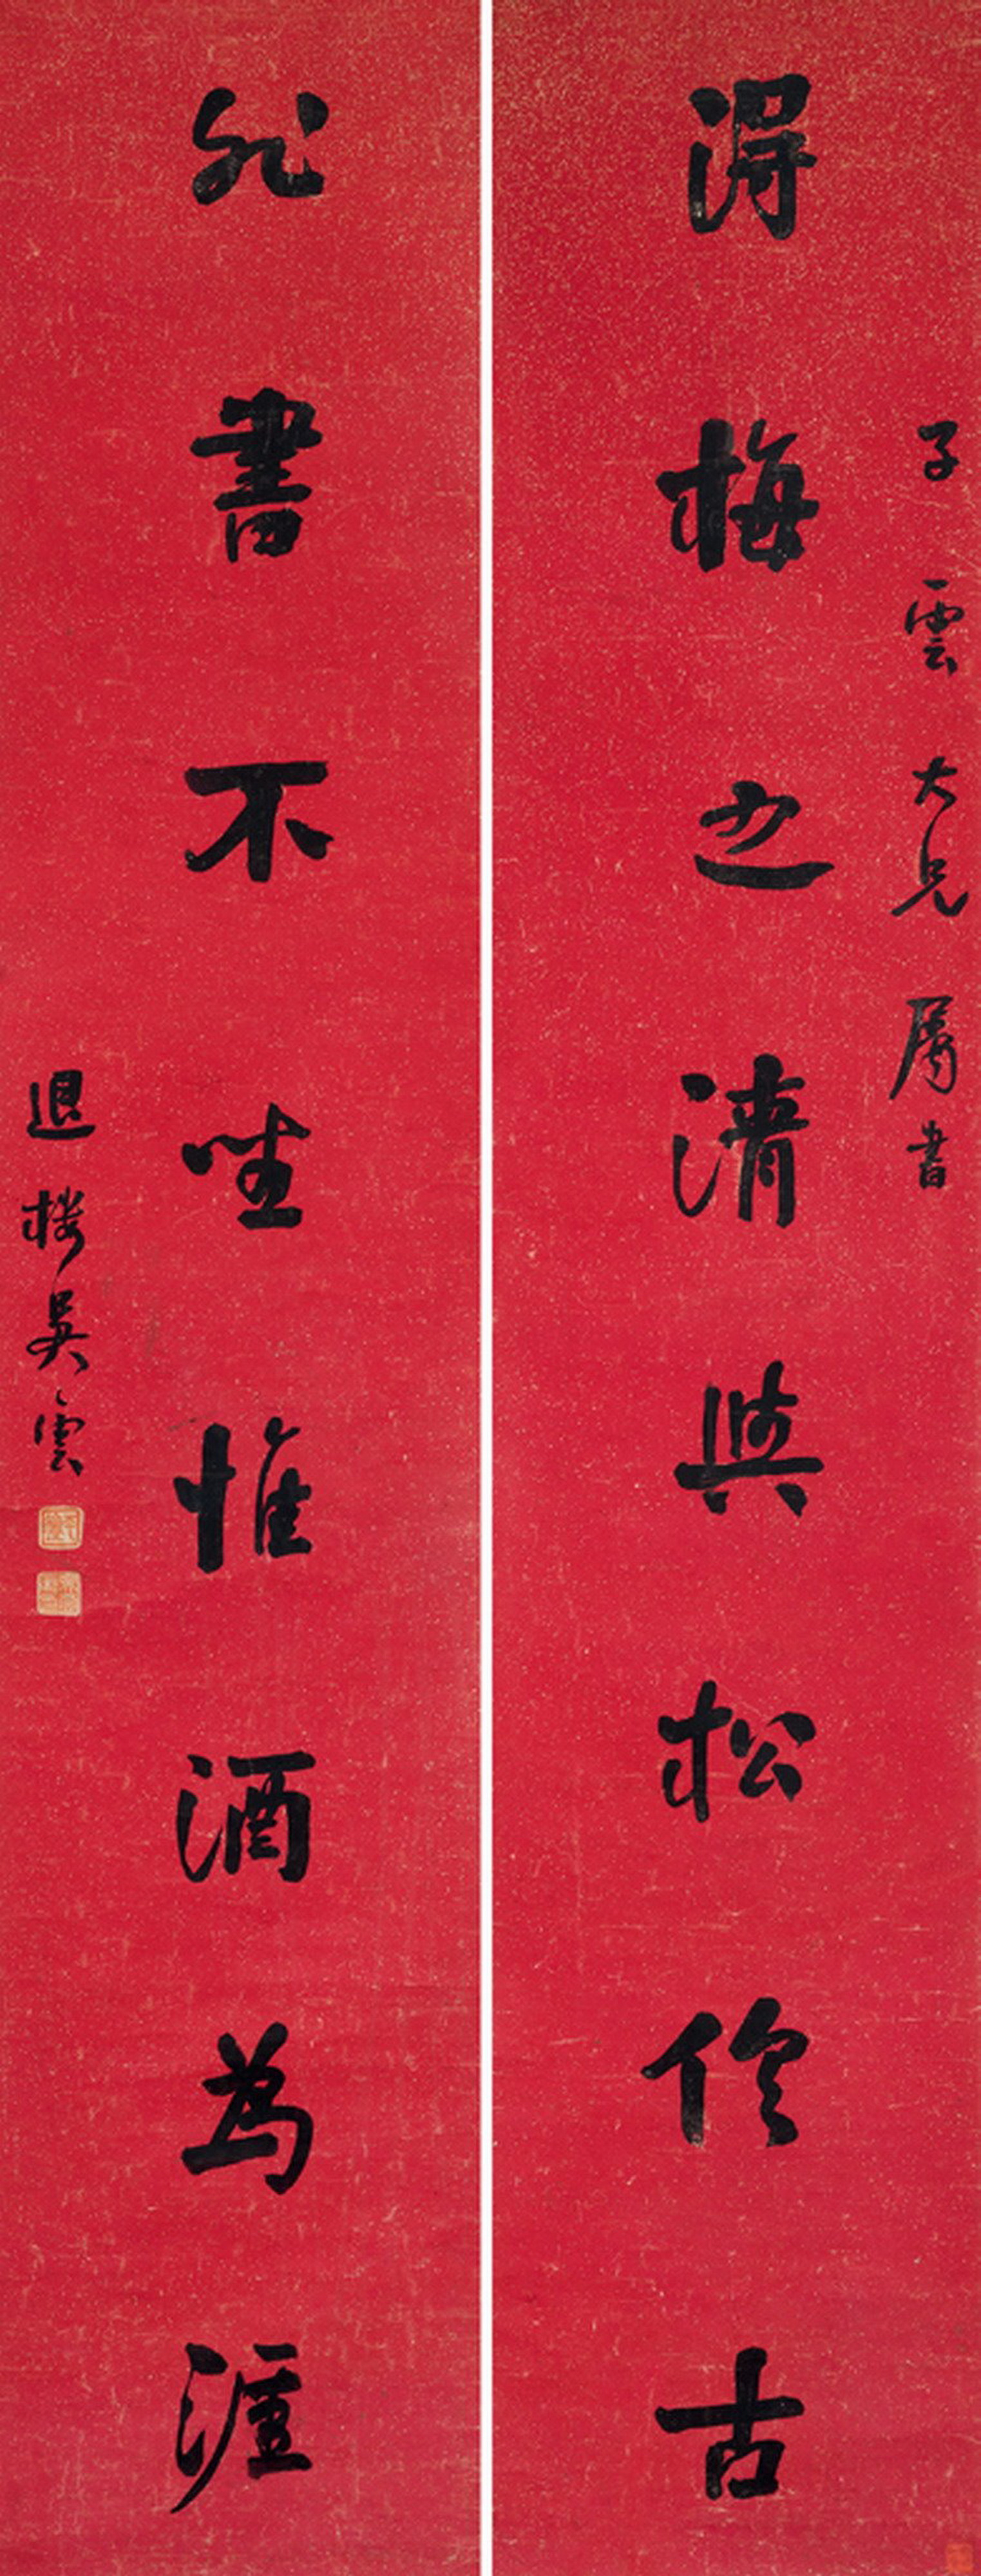 子雲大兄屬書
得梅之清與松古
書不惟酒為涯
退樓吳雲